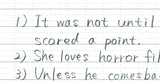 1) It was not until
scored a point.
2) She loves horror fil
3) Unless he comesba